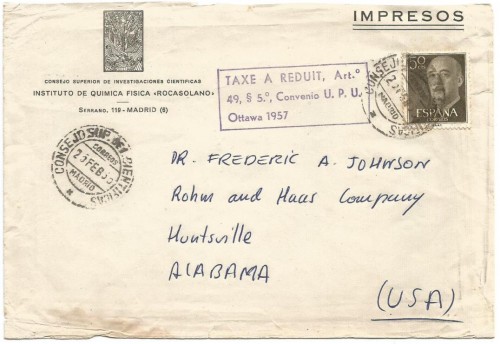 IMPRESOS
CONSEJO SUPERIOR DE INVESTIGACIONES CIENTIFICAS
INSTITUTO DE QUIMICA FISICA «ROCASOLANO»
SERRANO, 119 - MADRID (6)
TAXE A REDUIT, Art.º
49, § 5.º, Convenio U. P. U.
Ottawa 1957
ESPAÑA
CORREOS
CONSEJO SUP. DE I. CIENTIFICAS
CORREOS
MADRID
CONSEJO
MADRID
DR. FREDERIC A. JOHNSON
Rohm and Haas Company
Huntsville
ALABAMA
(USA)